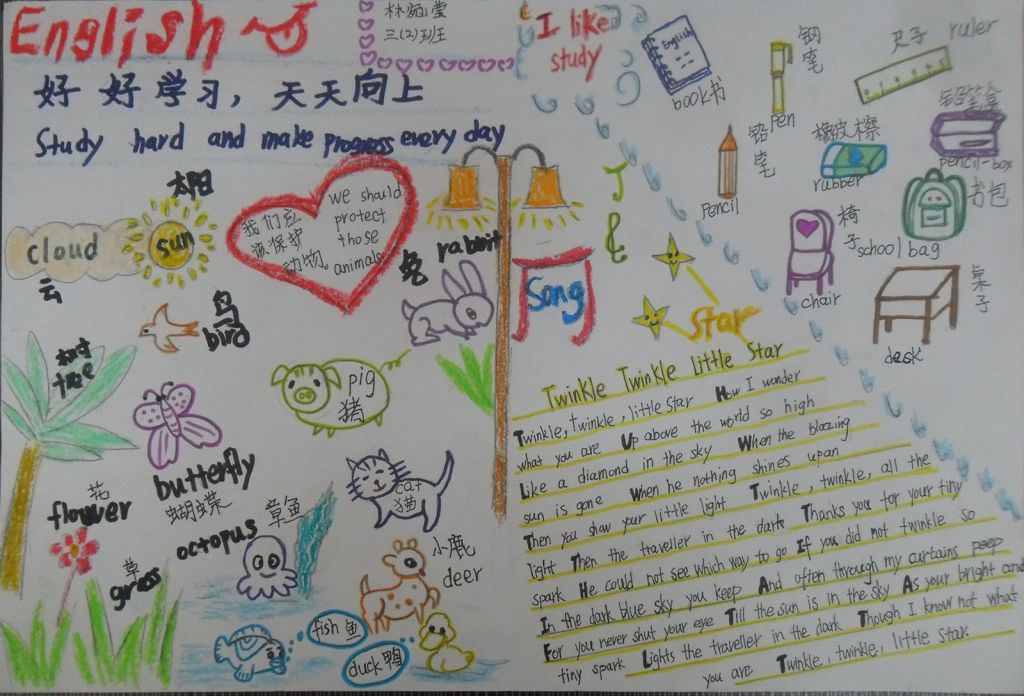 English
林宛莹
三(2)班
I like
study
好好学习，天天向上
Study hard and make progress every day
太阳
sun
cloud
云
我们应
该保护
动物。
we should
protect
those
animals
兔
rabbit
鸟
bird
树
tree
pig
猪
butterfly
蝴蝶
花
flower
cat
猫
octopus
章鱼
小鹿
deer
草
grass
fish 鱼
duck 鸭
English
book 书
钢笔
pen
尺子 ruler
铅笔
pencil
橡皮擦
rubber
铅笔盒
pencil-box
书包
school bag
椅子
chair
桌子
desk
Song
Star
Twinkle Twinkle Little Star
Twinkle, twinkle, little star How I wonder
what you are Up above the world so high
Like a diamond in the sky When the blazing
sun is gone When he nothing shines upan
Then you show your little light Twinkle, twinkle, all the
light Then the traveller in the dark Thanks you for your tiny
spark He could not see which way to go If you did not twinkle so
In the dark blue sky you keep And often through my curtains peep
For you never shut your eye Till the sun is in the sky As your bright and
tiny spark Lights the traveller in the dark Though I know not what
you are Twinkle, twinkle, little star.